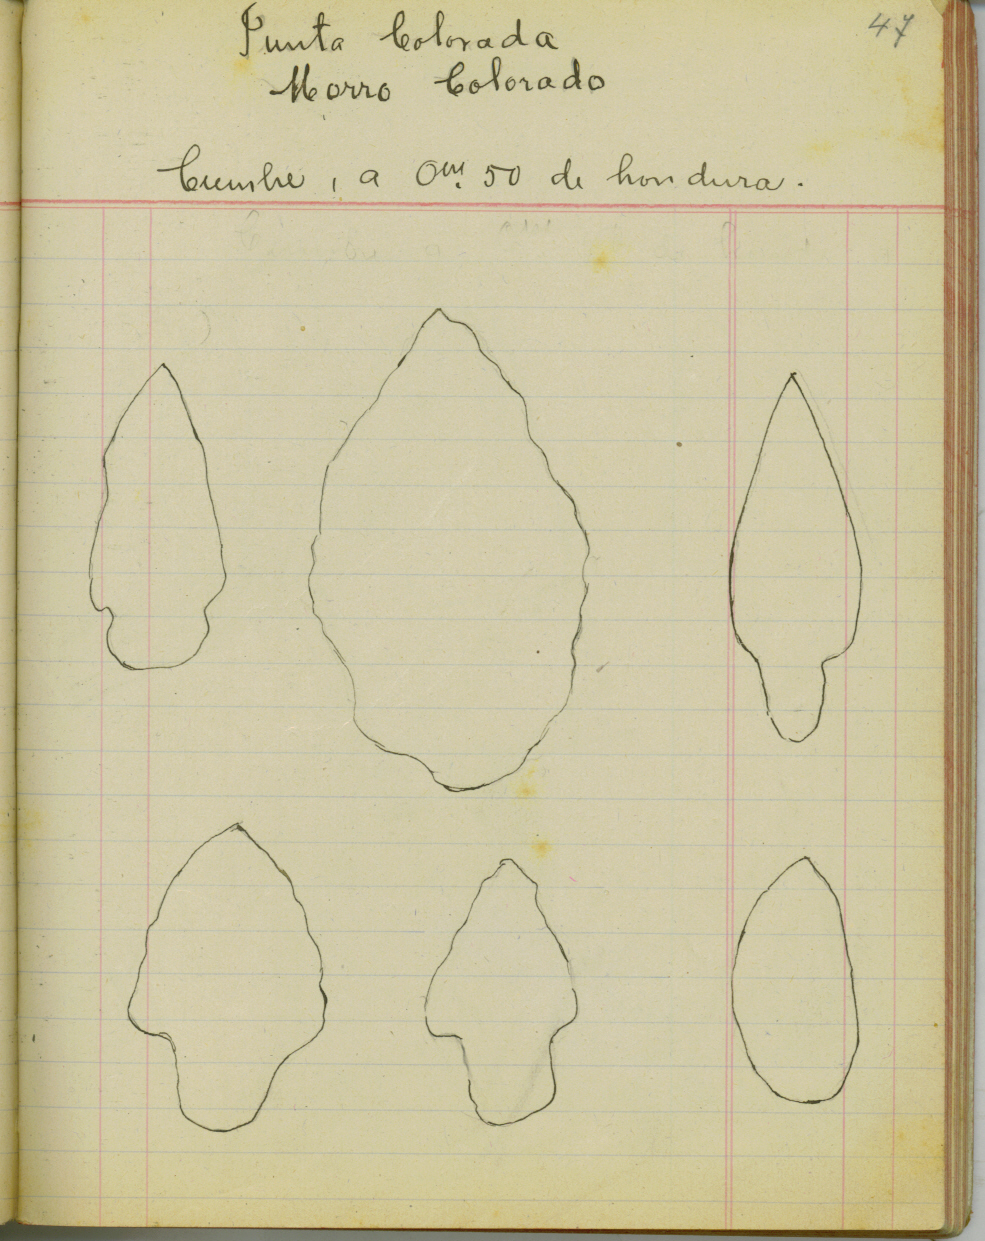 47
Punta Colorada
Morro Colorado
Cumbre, a 0m. 50 de hondura.